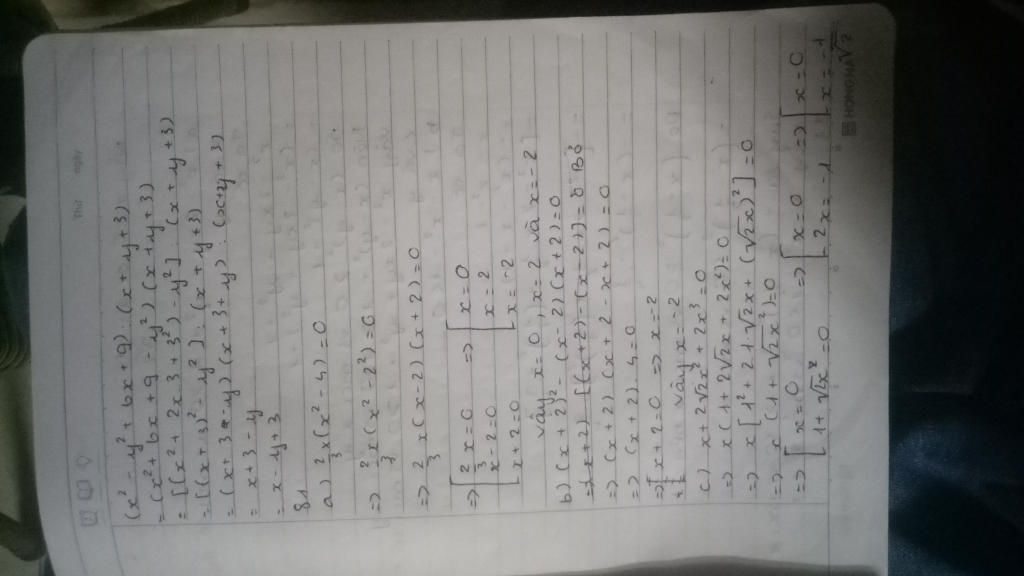 Thứ ngày
(x² - y² + 6x + 9) : (x + y + 3)
= (x² + 6x + 9 - y²) (x + y + 3)
= [(x² + 2x3 + 3²) - y²] : (x + y + 3)
= [(x + 3)² - y²] : (x + y + 3)
= (x + 3 - y) (x + 3 + y) : (x + y + 3)
= x + 3 - y
= x - y + 3
a) 2/3 x(x² - 4) = 0
=> 2/3 x (x² - 2²) = 0
=> 2/3 x (x - 2) (x + 2) = 0
=> [ 2/3 x = 0 => [ x = 0
x - 2 = 0 x = 2
x + 2 = 0 x = -2
vậy x = 0, x = 2 và x = -2
b) (x + 2)² - (x - 2) (x + 2) = 0
=> (x + 2) [(x + 2) - (x - 2)] = 0 Bỏ
=> (x + 2) (x + 2 - x + 2) = 0
=> (x + 2) . 4 = 0
=> x + 2 = 0 => x = -2
vậy x = -2
c) x + 2√2x² + 2x³ = 0
=> x (1 + 2√2x + 2x²) = 0
=> x [1² + 2.1.√2x + (√2x)²] = 0
=> x (1 + √2x²) = 0
=> [ x = 0 => [ x = 0 => [ x = 0
1 + √2x² = 0 2x = -1 x = -1/√2
HONGHA